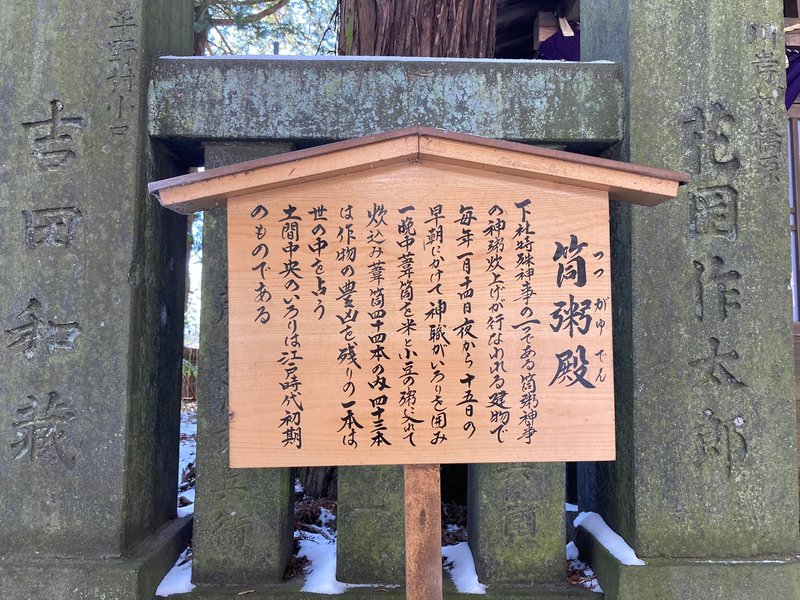 川岸村橋原
花岡作太郎
筒粥殿
つつがゆでん
下社特殊神事の一つである筒粥神事
の神粥炊上げが行なわれる建物で
毎年一月十四日夜から十五日の
早朝にかけて神職がいろりを囲み
一晩中葦筒を米と小豆の粥に入れて
炊込み葦筒四十四本の内四十三本
は作物の豊凶を残りの一本は
世の中を占う
土間中央のいろりは江戸時代初期
のものである
平野村小口
吉田和蔵